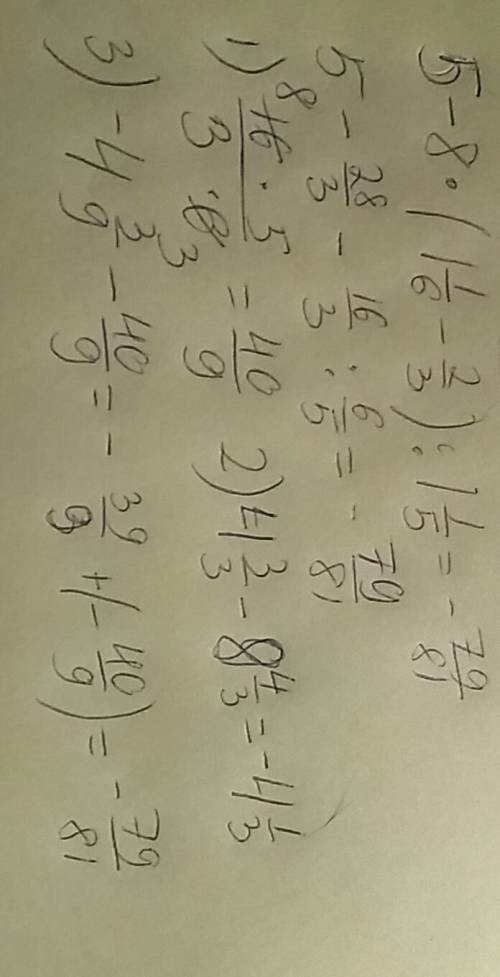 5 - 8 · (1 1/6 - 2/3) : 1 1/5 = - 79/81
5 - 28/3 - 16/3 : 6/5 = - 79/81
1) 8 16 · 5 / 3 · 6 3 = 40/9 2) 4 3/3 - 8 4/3 = -4 1/3
3) -4 3/9 - 40/9 = - 39/9 +(- 40/9) = - 79/81